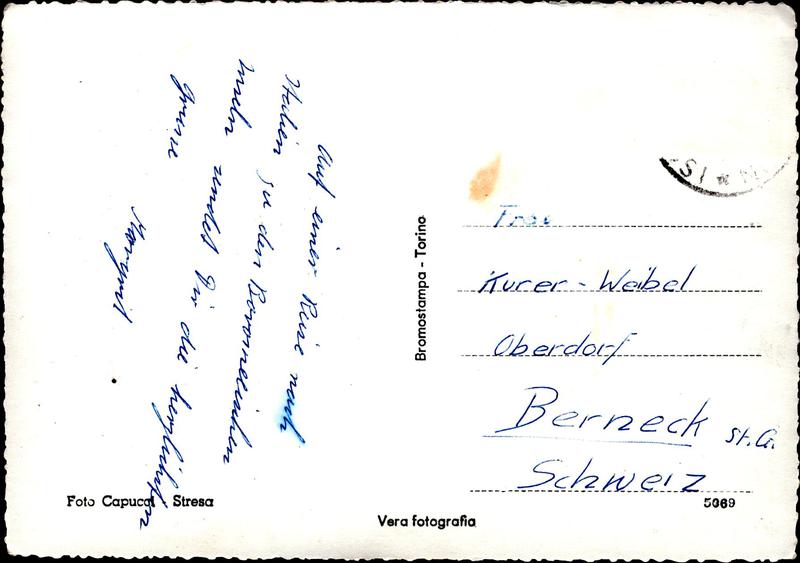 Auf einer Reise nach
Italien zu den Borromeeischen
Inseln sendet Dir die herzlichsten
Grüsse
Margrit
Bromostampa - Torino
Frau
Kurer - Weibel
Oberdorf
Berneck St. G.
Schweiz
Foto Capucci Stresa
5069
Vera fotografia